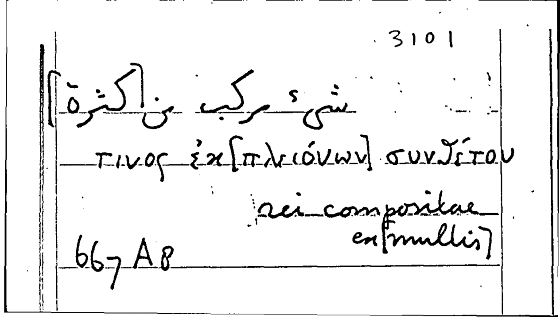 3101
شيء مركب من [كثرة]
τινος ἐκ [πλειόνων] συνθέτου
rei compositae
ex [multis]
667 A8